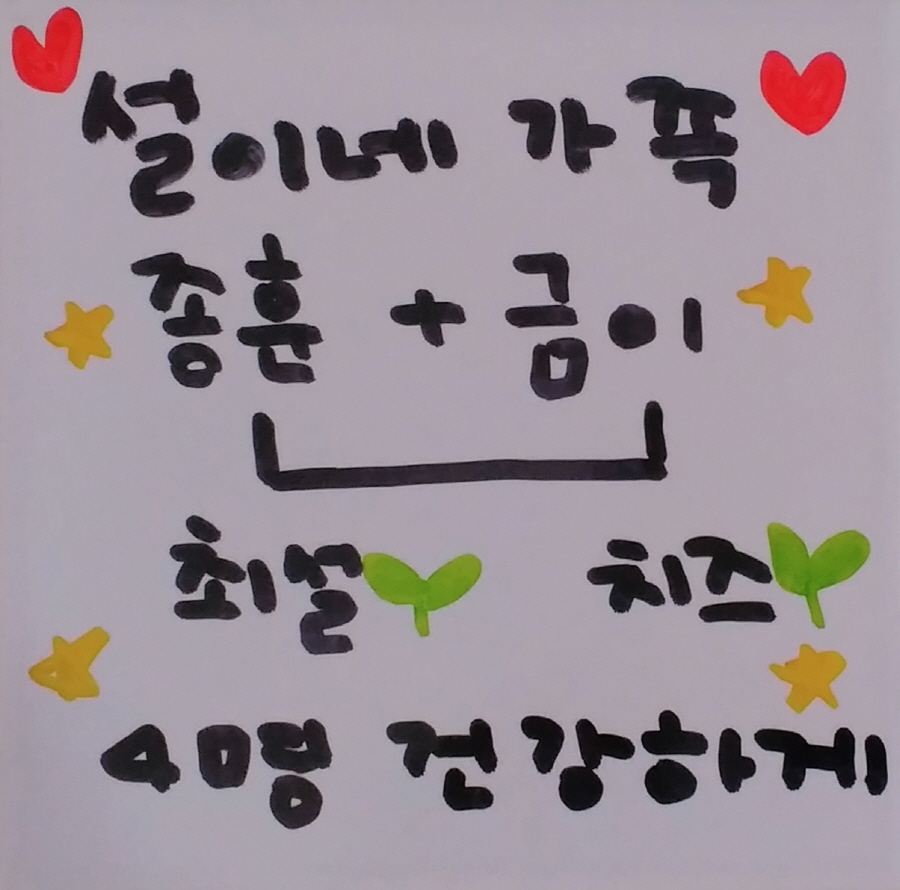 설이네 가족
종훈 + 금이
최설 치즈
4ㅁ명 건강하게